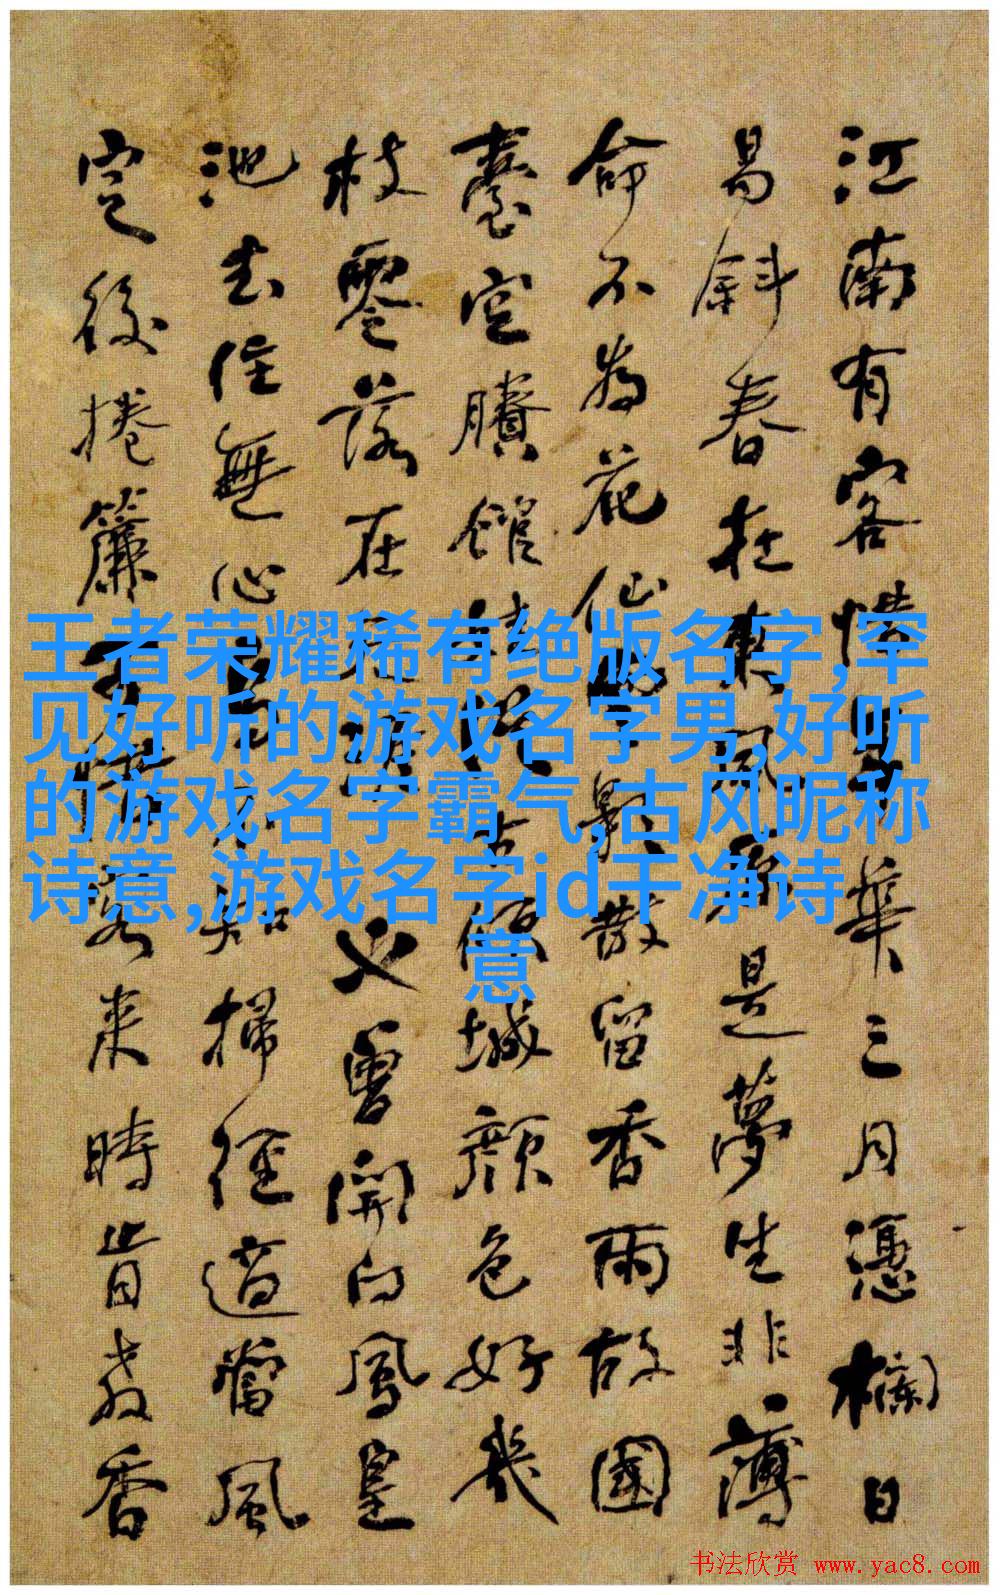 江南有客惜華三月憑欄日
易斜春在東風是夢生非薄
命不為花仙影散留香雨故國
臺空賸館娃古傾城顏色好幾
枝零落在又曾開向鳳皇
池去住無心知掃徑適當風
定後捲簾惜客來時肯教香
王者荣耀稀有绝版名字,罕
见好听的游戏名字男,好听
的游戏名字霸气,古风昵称
诗意,游戏名字id干净诗
意
书法欣赏 www.yac8.com